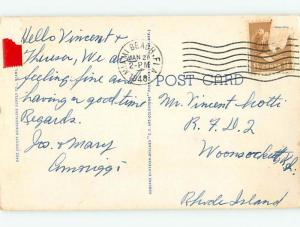 Hello Vincent &
Theresa, We are
feeling fine and
having a good time
Regards.
Jos. & Mary
MIAMI BEACH, FLA.
JAN 28
2-PM
1948
POST CARD
Mr. Vincent
R. F. D. 2
Woonsocket, R.I.
Rhode Island